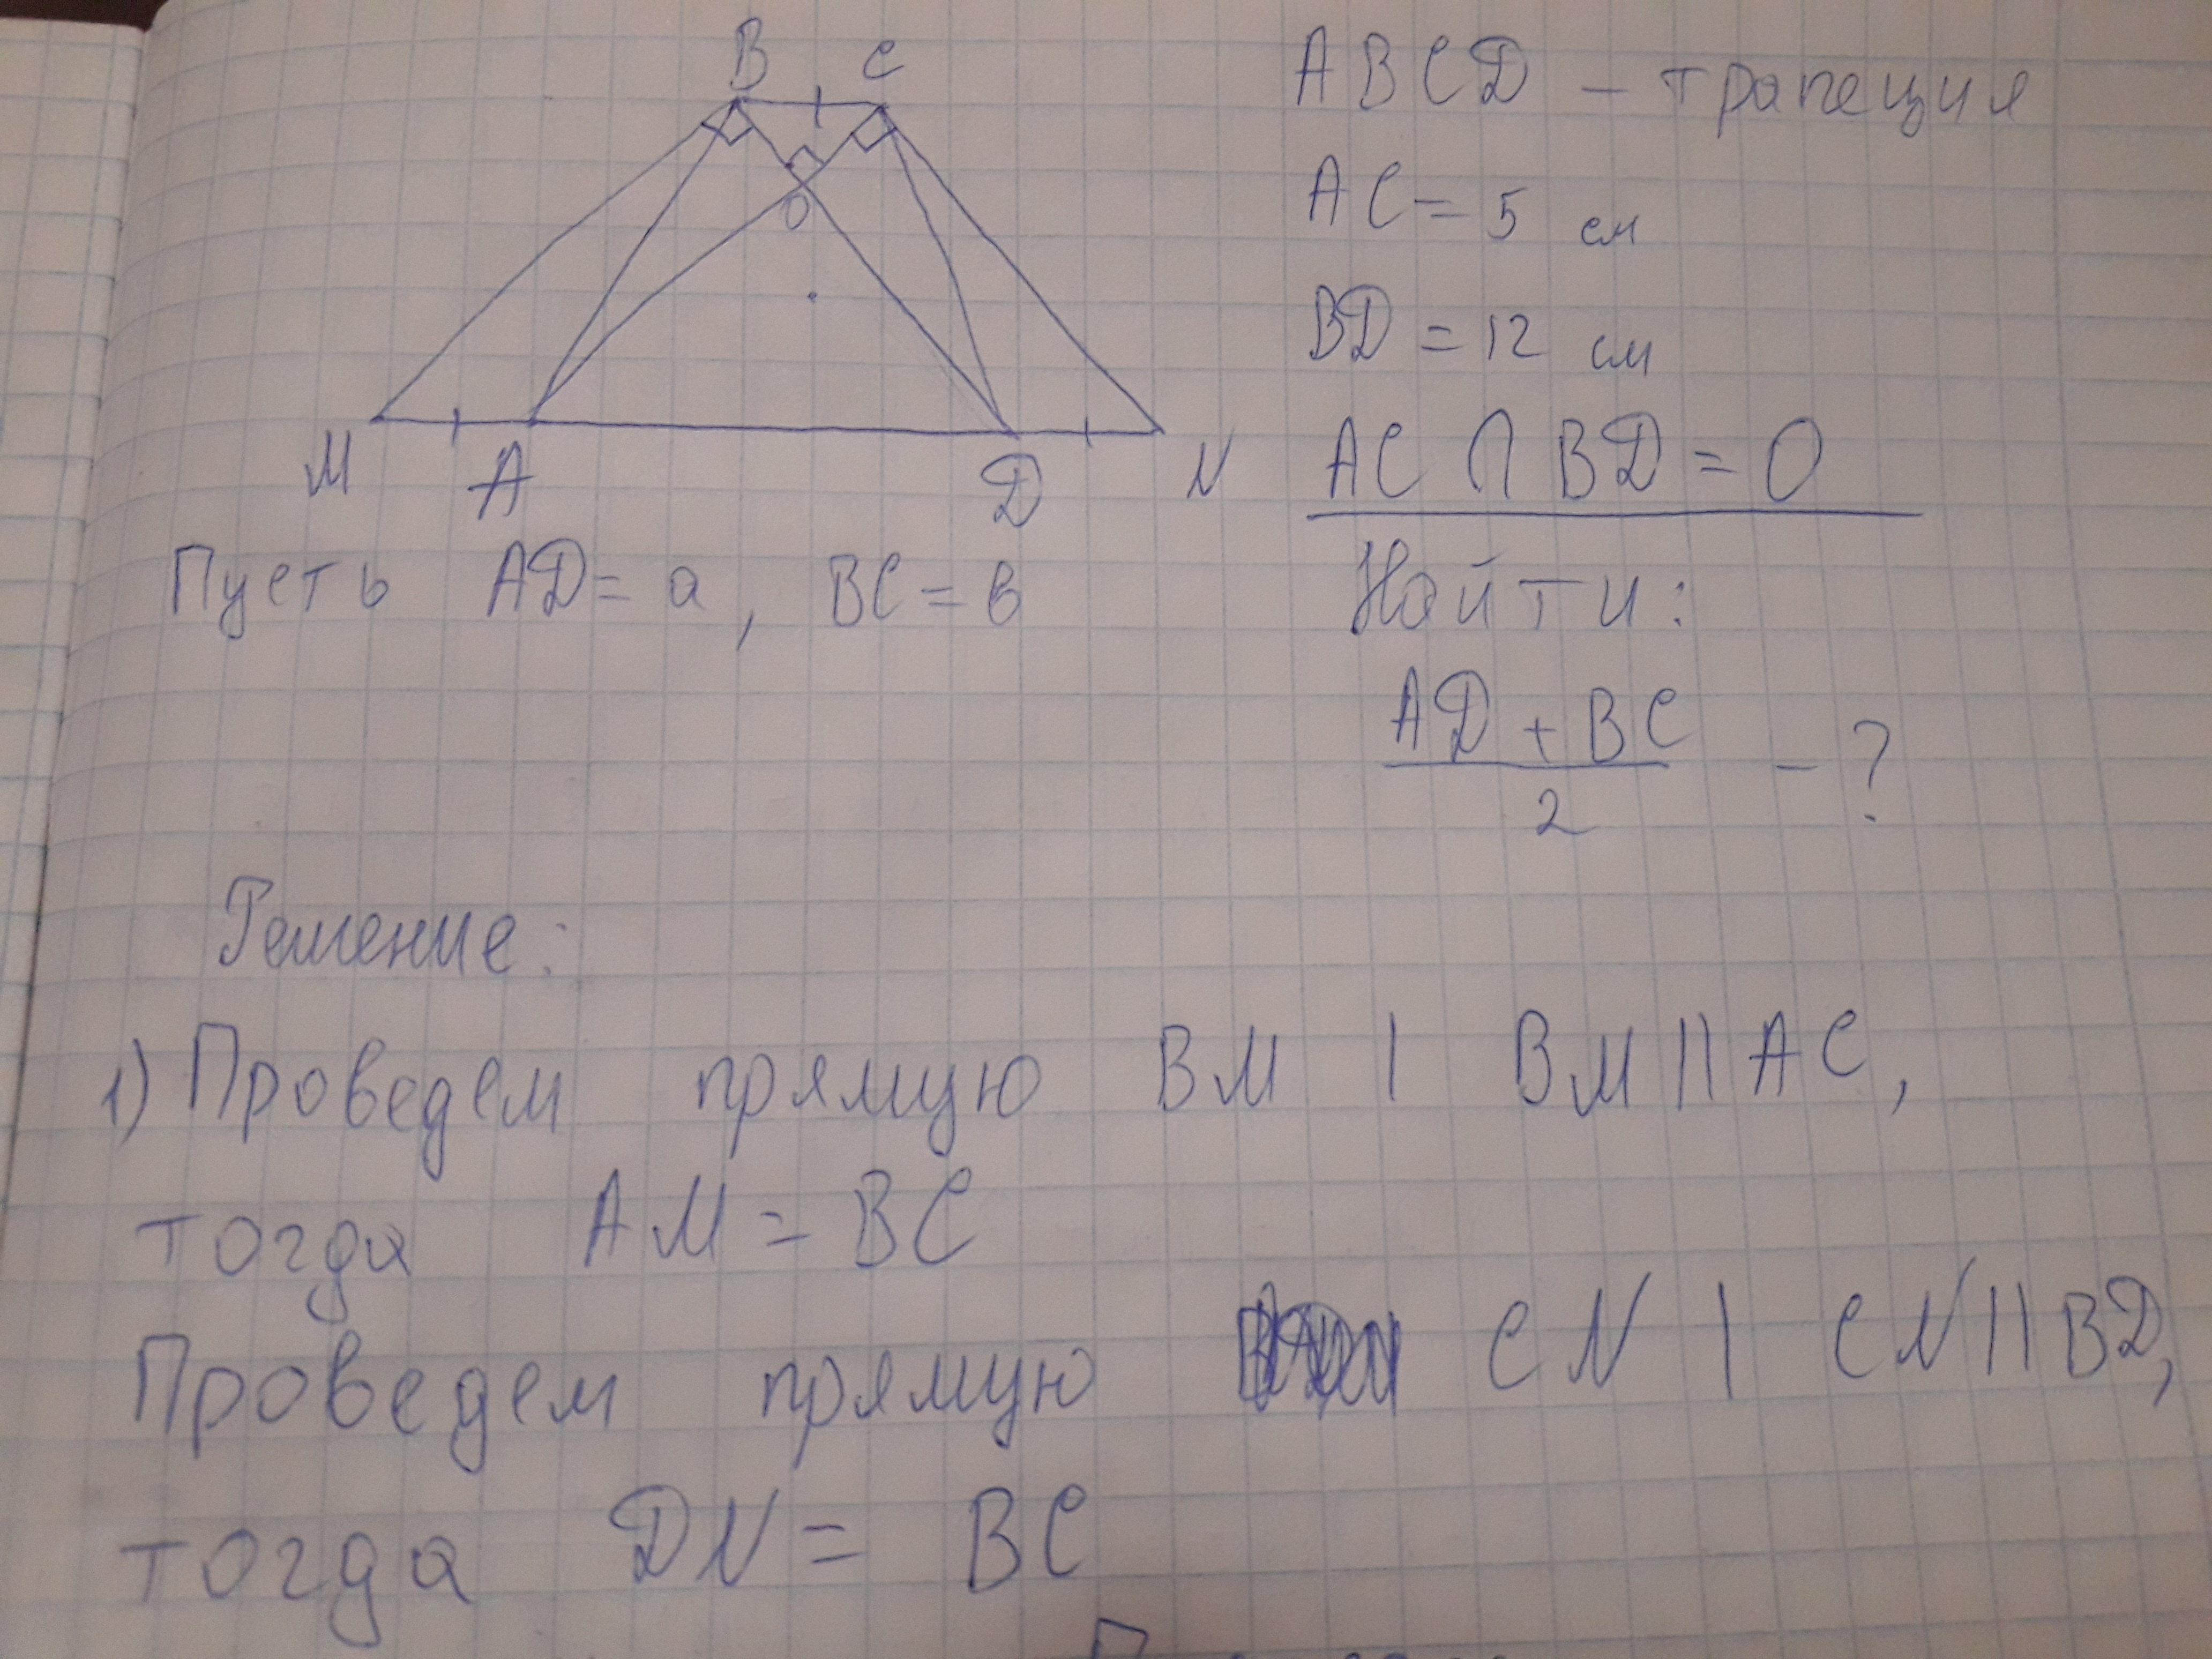 B C
O
M A D N
ABCD – трапеция
AC = 5 см
BD = 12 см
AC ∩ BD = O
Найти:
AD + BC
2
– ?
Пусть AD = a, BC = в
Решение:
1) Проведем прямую BM | BM || AC,
тогда AM = BC
Проведем прямую CN | CN || BD,
тогда DN = BC